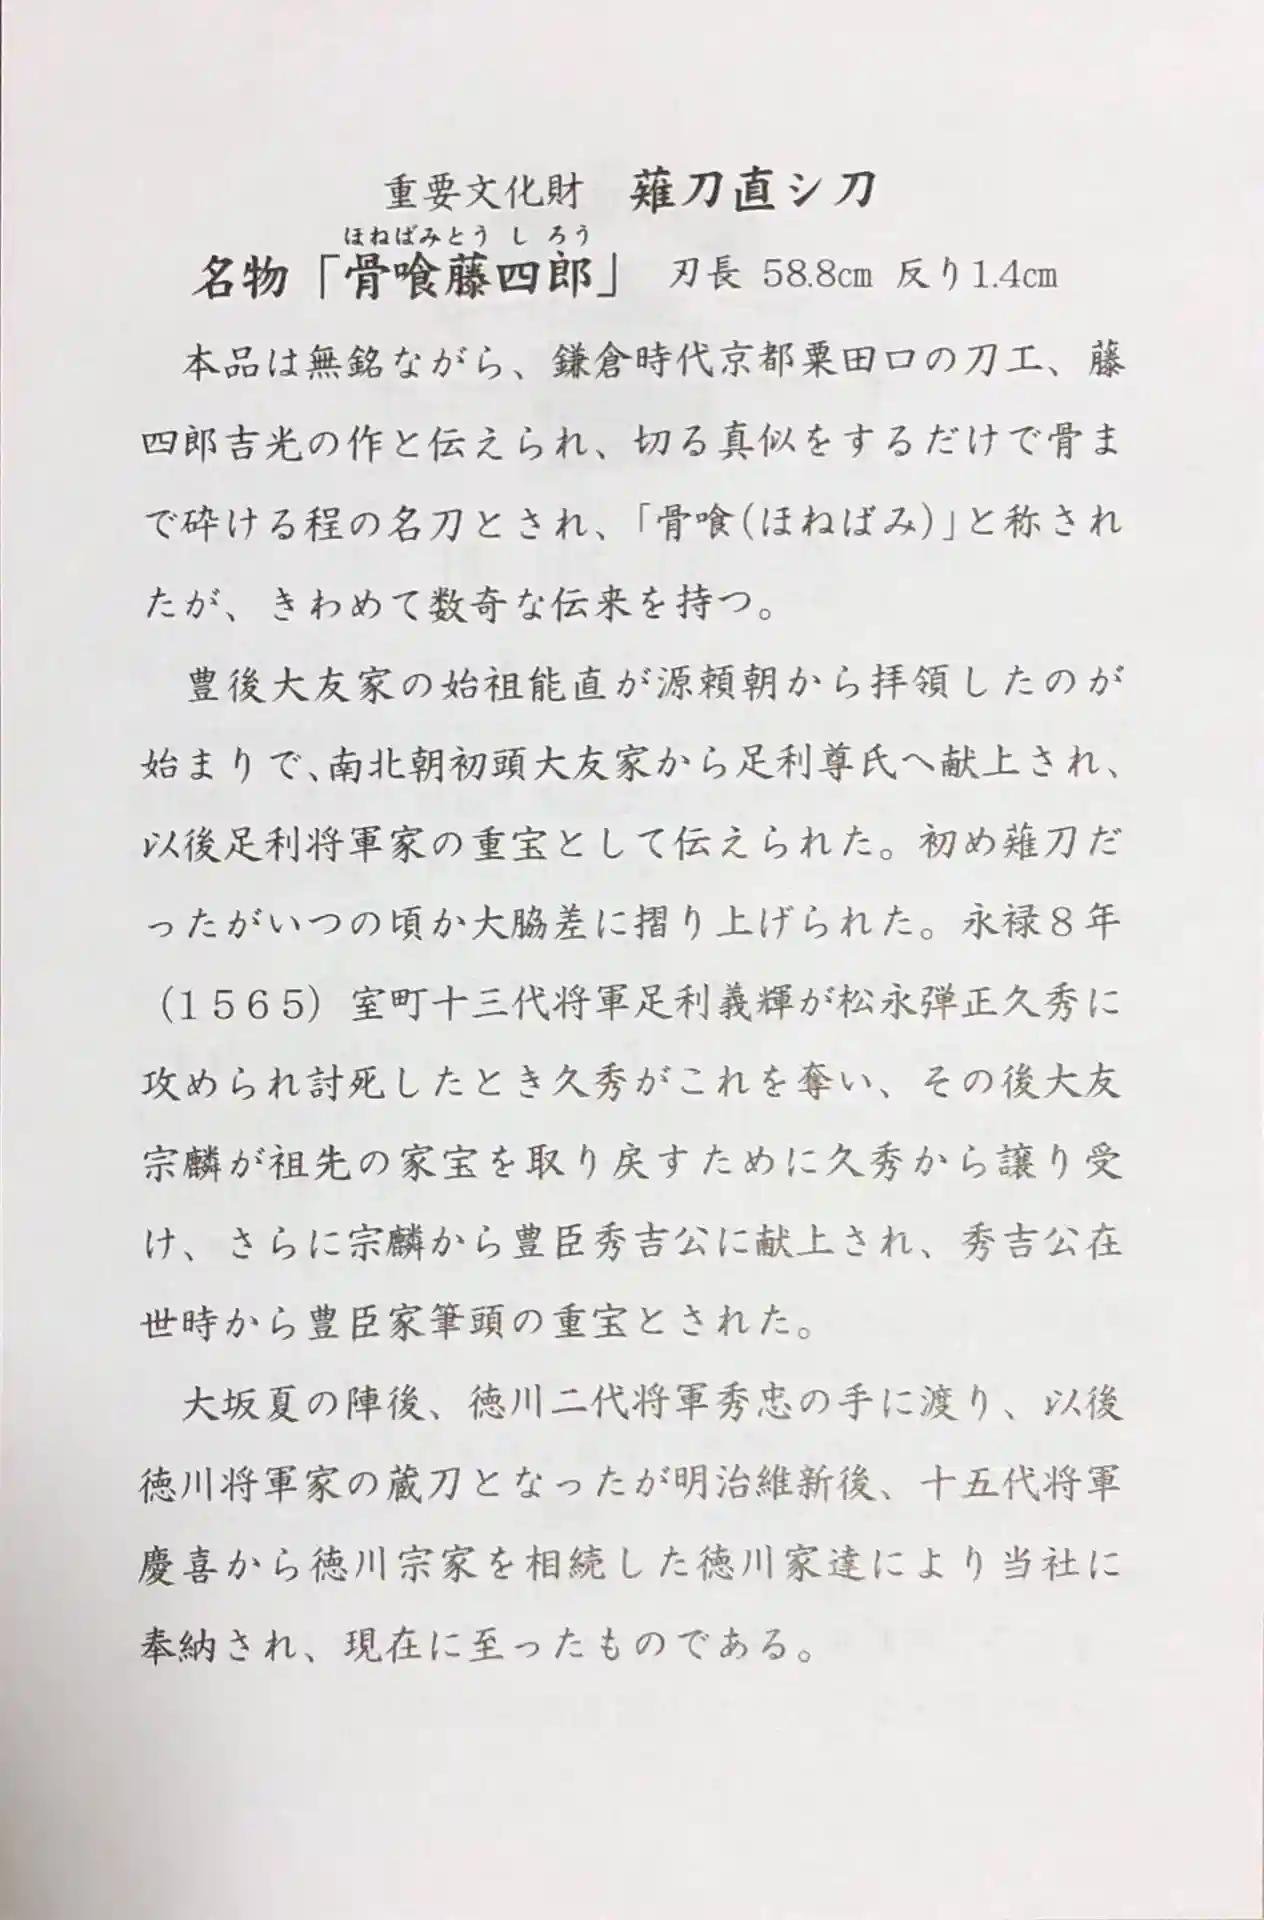 重要文化財　薙刀直シ刀
ほねばみとうしろう
名物「骨喰藤四郎」　刃長 58.8㎝ 反り1.4㎝
　本品は無銘ながら、鎌倉時代京都粟田口の刀工、藤
四郎吉光の作と伝えられ、切る真似をするだけで骨ま
で砕ける程の名刀とされ、「骨喰(ほねばみ)」と称され
たが、きわめて数奇な伝来を持つ。
　豊後大友家の始祖能直が源頼朝から拝領したのが
始まりで、南北朝初頭大友家から足利尊氏へ献上され、
以後足利将軍家の重宝として伝えられた。初め薙刀だ
ったがいつの頃か大脇差に摺り上げられた。永禄８年
（１５６５）室町十三代将軍足利義輝が松永弾正久秀に
攻められ討死したとき久秀がこれを奪い、その後大友
宗麟が祖先の家宝を取り戻すために久秀から譲り受
け、さらに宗麟から豊臣秀吉公に献上され、秀吉公在
世時から豊臣家筆頭の重宝とされた。
　大坂夏の陣後、徳川二代将軍秀忠の手に渡り、以後
徳川将軍家の蔵刀となったが明治維新後、十五代将軍
慶喜から徳川宗家を相続した徳川家達により当社に
奉納され、現在に至ったものである。